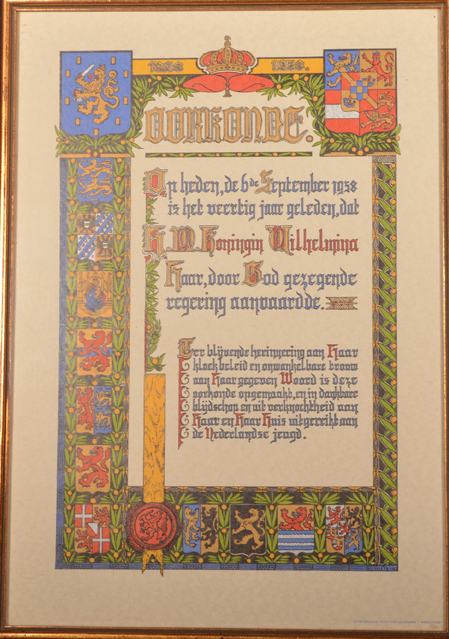 1898 1938
OORKONDE.
Op heden, de 6de September 1938
is het veertig jaar geleden, dat
H.M. Koningin Wilhelmina
Haar, door God gezegende
regering aanvaardde.
Ter blijvende herinnering aan Haar
kloek beleid en onwankelbare trouw
aan Haar gegeven Woord is deze
oorkonde opgemaakt, en in dankbare
blijdschap en uit verknochtheid aan
Haar en Haar Huis uitgereikt aan
de Nederlandse jeugd.